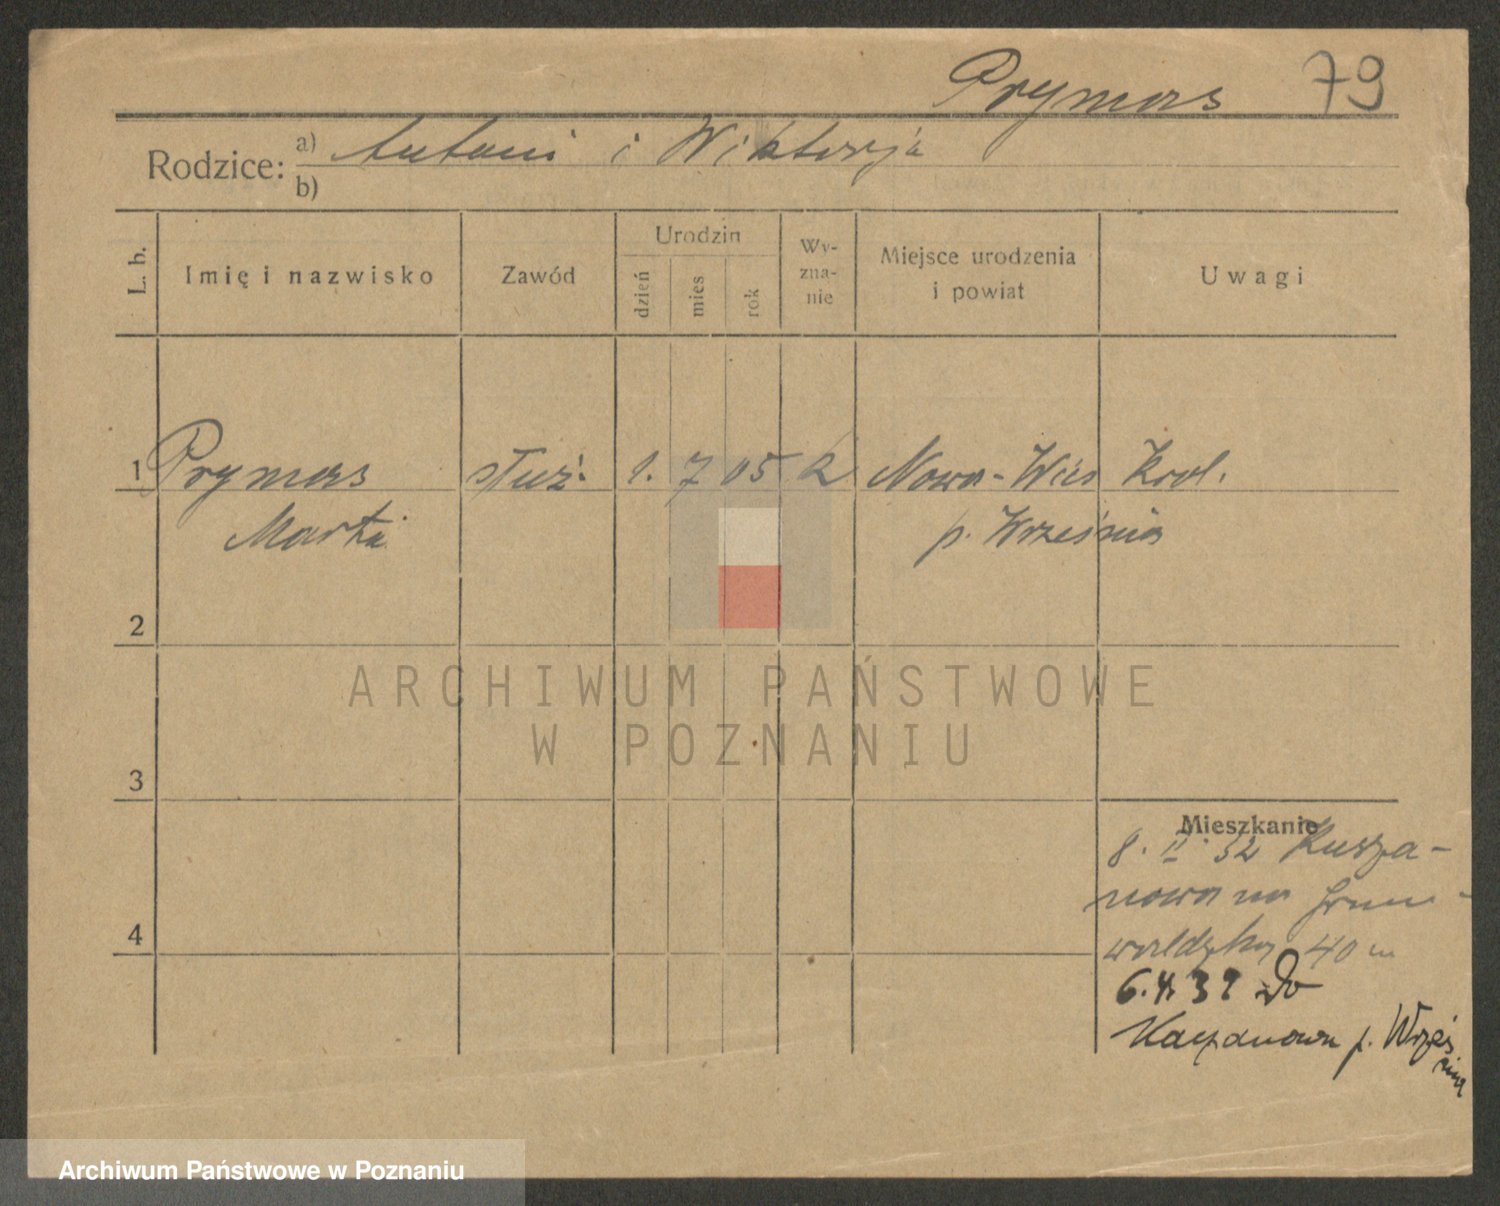 Prymas 79
Rodzice: a) Antoni i Wiktorja
b)
L. b. Imię i nazwisko Zawód Urodzin dzień mies rok Wy-zna-nie Miejsce urodzenia i powiat Uwagi
1 Prymas służ. 1. 7 05 k Nowa-Wieś Król.
Marta p. Września
2
ARCHIWUM PAŃSTWOWE
W POZNANIU
3
Mieszkanie
8. II. 32
4
40 m
6. 4. 32 Do
p. Wrześ
nia
Archiwum Państwowe w Poznaniu